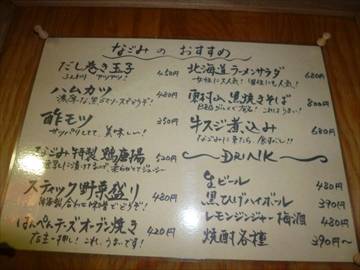 なごみのおすすめ
だし巻き玉子 450円
ハムカツ 450円
酢モツ 350円
サッパリしてて、美味しい!
なごみ特製 鶏唐揚 520円
スティック野菜盛り 480円
はんぺんチーズオーブン焼き 420円
店主一押し!これ、うまいです!
北海道ラーメンサラダ 680円
女性に大人気!男性にも人気!
東村山黒焼きそば 800円
牛スジ煮込み 680円
DRINK
生ビール 480円
黒ひげハイボール 390円
レモンジンジャー梅酒 480円
焼酎各種 390円〜